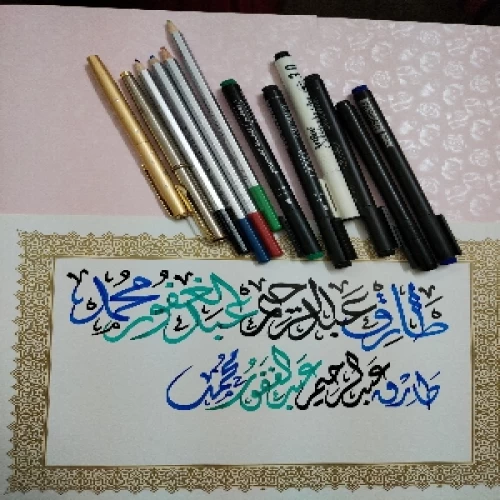 طارق عبدالرحيم عبدالغفور محمد
طارق عبدالرحيم عبدالغفور محمد